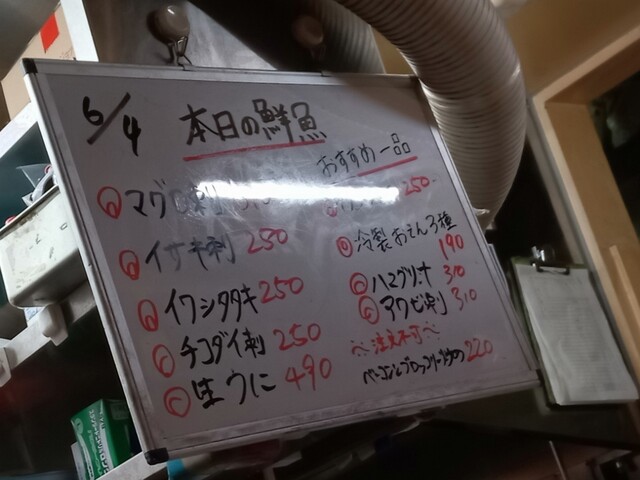 6/4
本日の鮮魚
マグロ刺
イサキ刺 250
イワシタタキ 250
チコダイ刺 250
生うに 490
おすすめ一品
250
冷製おでん3種
190
ハマグリ 310
アワビ刺 310
注文不可
ベーコンとブロッコリー 220